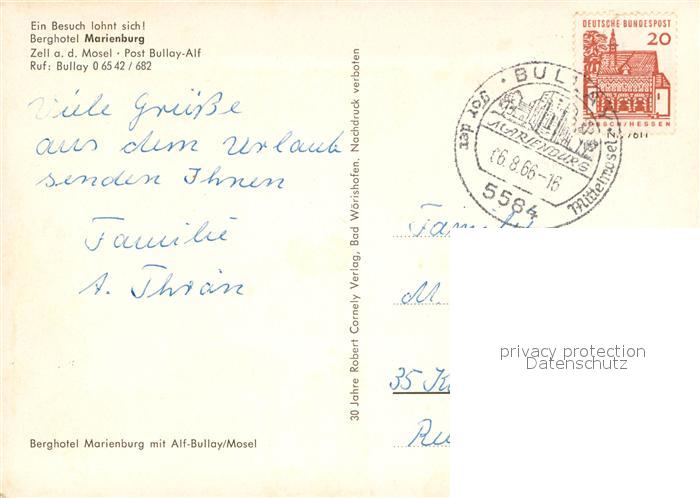 Ein Besuch lohnt sich!
Berghotel Marienburg
Zell a. d. Mosel · Post Bullay-Alf
Ruf: Bullay 0 65 42 / 682
Viele Grüße
aus dem Urlaub
senden Ihnen
Familie
A. Thrän
Berghotel Marienburg mit Alf-Bullay/Mosel
30 Jahre Robert Cornely Verlag, Bad Wörishofen. Nachdruck verboten
DEUTSCHE BUNDESPOST
20
LORSCH/HESSEN
MARIENBURG
06.8.66-16
5584
Mittelmosel
Familie
M.
35 K
privacy protection
Datenschutz